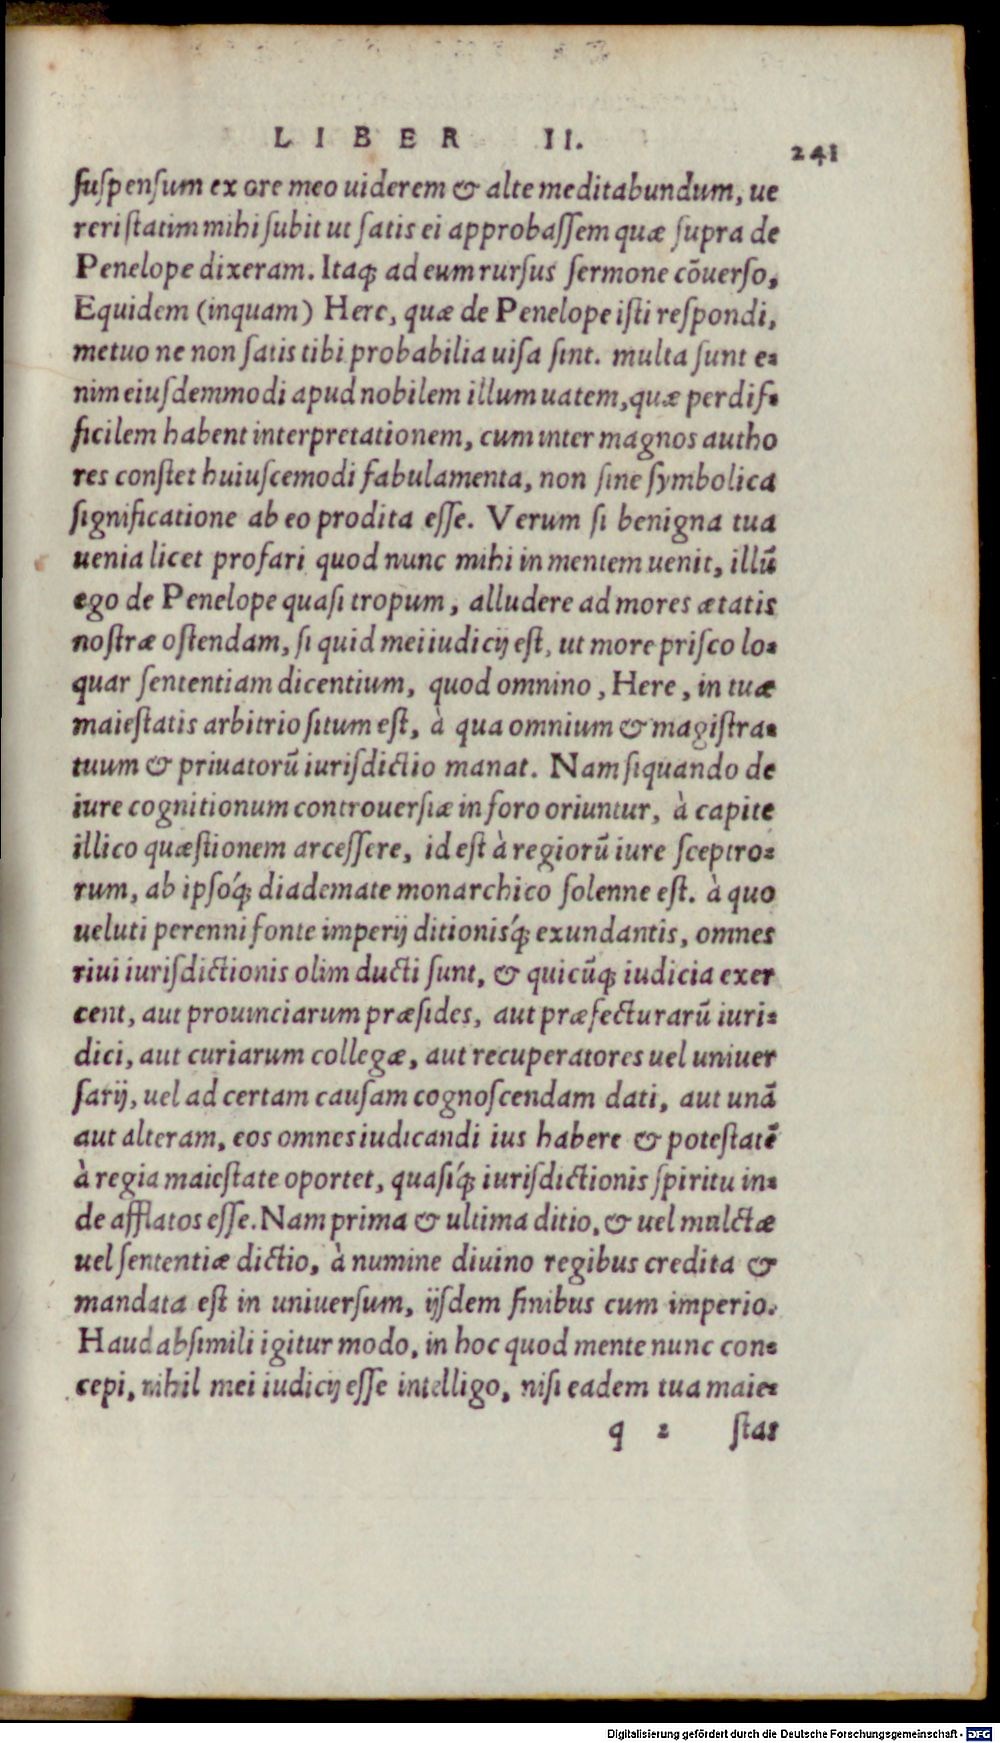 LIBER II. 241
ſuſpenſum ex ore meo uiderem & alte meditabundum, ue
reri ſtatim mihi ſubit ut ſatis ei approbaſſem quæ ſupra de
Penelope dixeram. Itaq; ad eum rurſus ſermone cõuerſo,
Equidem (inquam) Here, quæ de Penelope iſti reſpondi,
metuo ne non ſatis tibi probabilia uiſa ſint. multa ſunt e-
nim eiuſdemmodi apud nobilem illum uatem, quæ perdif-
ficilem habent interpretationem, cum inter magnos autho
res conſtet huiuſcemodi fabulamenta, non ſine ſymbolica
ſignificatione ab eo prodita eſſe. Verum ſi benigna tua
uenia licet profari quod nunc mihi in mentem uenit, illũ
ego de Penelope quaſi tropum, alludere ad mores ætatis
noſtræ oſtendam, ſi quid mei iudicij eſt, ut more priſco lo-
quar ſententiam dicentium, quod omnino, Here, in tuæ
maieſtatis arbitrio ſitum eſt, à qua omnium & magiſtra-
tuum & priuatorũ iuriſdictio manat. Nam ſiquando de
iure cognitionum controuerſiæ in foro oriuntur, à capite
illico quæſtionem arceſſere, id eſt à regiorũ iure ſceptro-
rum, ab ipſóq; diademate monarchico ſolenne eſt. à quo
ueluti perenni fonte imperij ditionisq́; exundantis, omnes
riui iuriſdictionis olim ducti ſunt, & quicũq; iudicia exer
cent, aut prouinciarum præſides, aut præfecturarũ iuri-
dici, aut curiarum collegæ, aut recuperatores uel uniuer
ſarij, uel ad certam cauſam cognoſcendam dati, aut unã
aut alteram, eos omnes iudicandi ius habere & poteſtatẽ
à regia maieſtate oportet, quaſiq́; iuriſdictionis ſpiritu in-
de afflatos eſſe. Nam prima & ultima ditio, & uel mulctæ
uel ſententiæ dictio, à numine diuino regibus credita &
mandata eſt in uniuerſum, ijſdem finibus cum imperio.
Haud abſimili igitur modo, in hoc quod mente nunc con-
cepi, nihil mei iudicij eſſe intelligo, niſi eadem tua maie-
q 2 ſtas
Digitalisierung gefördert durch die Deutsche Forschungsgemeinschaft - DFG